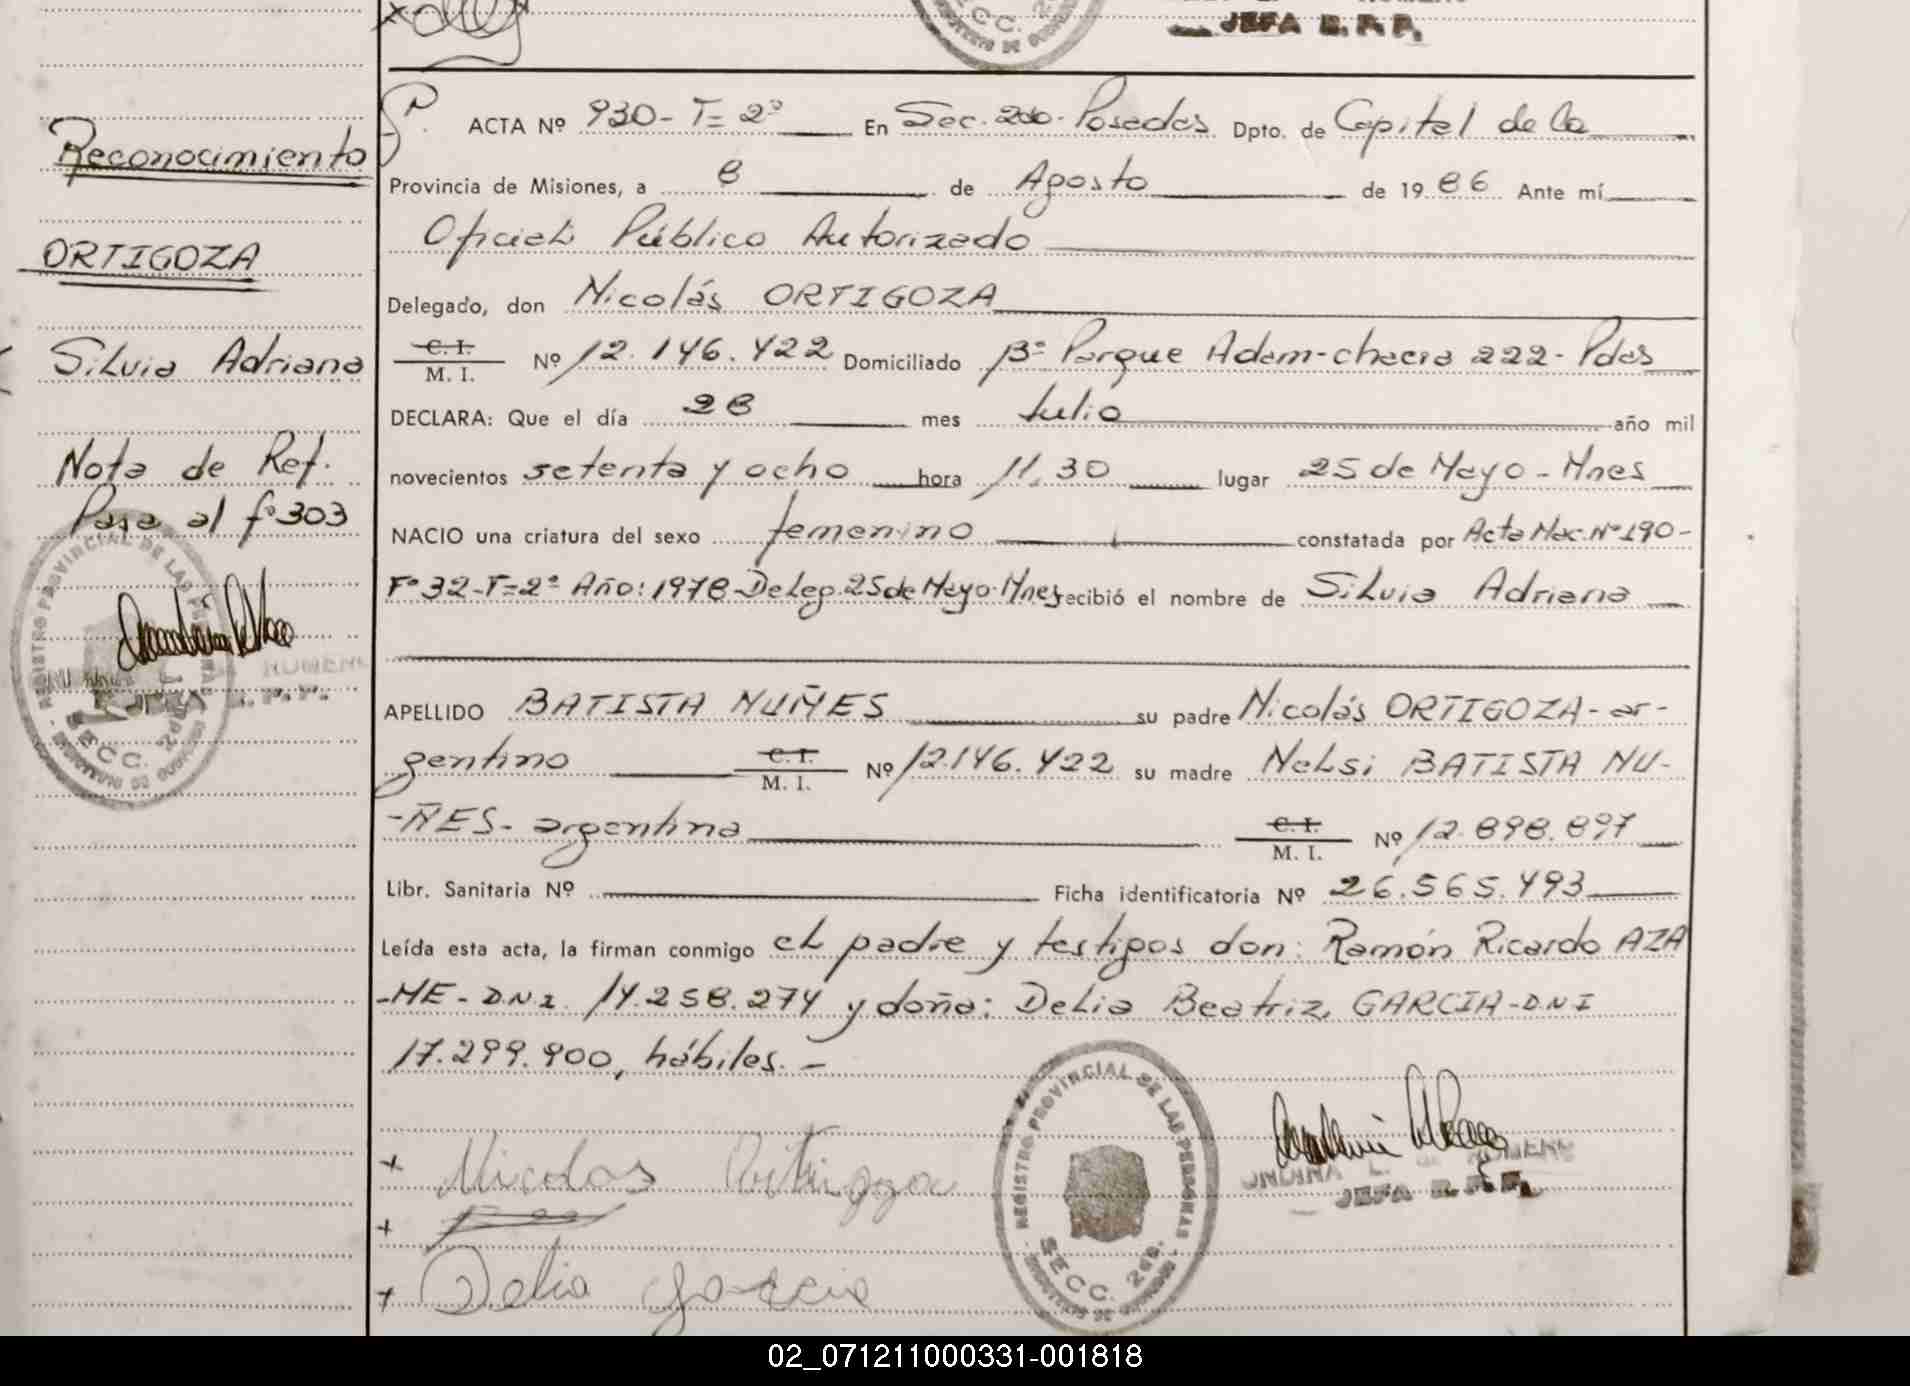 JEFA E.P.P.
Reconocimiento
ORTIGOZA
Silvia Adriana
Nota de Ref.
Pasa al fº 303
ACTA Nº 930 - T= 2º En Sec. 2da. Posadas Dpto. de Capital de la
Provincia de Misiones, a 8 de Agosto de 1986 Ante mí
Oficial Público Autorizado
Delegado, don Nicolás ORTIGOZA
C. I.
M. I. Nº 12.146.422 Domiciliado Bº Parque Adam-chacra 222- Pdas
DECLARA: Que el día 28 mes Julio año mil
novecientos setenta y ocho hora 11,30 lugar 25 de Mayo - Mnes
NACIO una criatura del sexo femenino constatada por Acta Nac. Nº 190-
Fº 32-T=2º Año: 1978-Deleg. 25 de Mayo-Mnes recibió el nombre de Silvia Adriana
APELLIDO BATISTA NUÑES su padre Nicolás ORTIGOZA - ar-
gentino C. I. M. I. Nº 12.146.422 su madre Nelsi BATISTA NU-
-ÑES- argentina C. I. M. I. Nº 12.898.897
Libr. Sanitaria Nº Ficha identificatoria Nº 26.565.493
Leída esta acta, la firman conmigo el padre y testigos don: Ramón Ricardo AZA
-ME - D.N.I. 14.258.274 y doña: Delia Beatriz GARCIA - D.N.I
17.299.900, hábiles. -
+ Nicolas Ortigoza
+
+ Delia Garcia
REGISTRO PROVINCIAL DE LAS PERSONAS
SECC. 2da.
JEFA E.P.P.
02_071211000331-001818